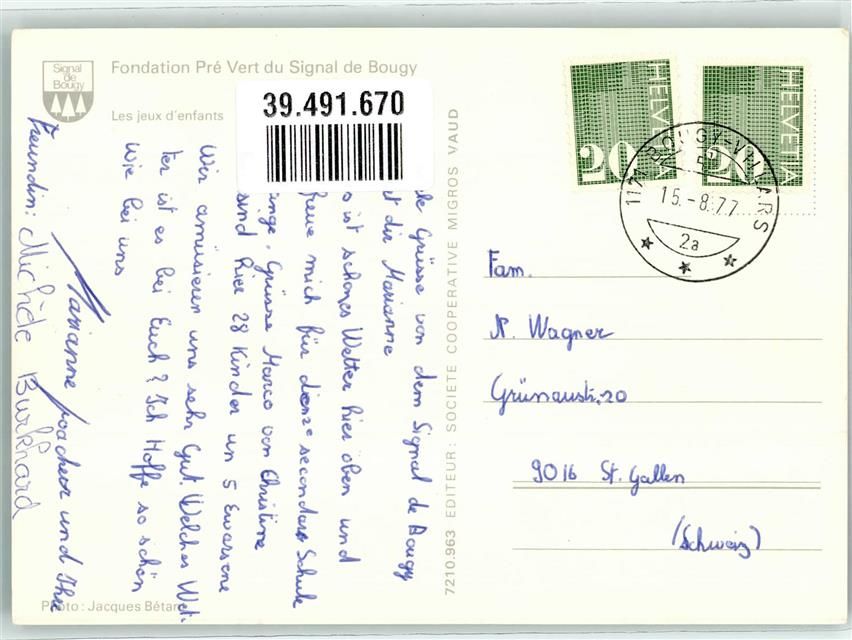 Signal
de
Bougy
Fondation Pré Vert du Signal de Bougy
Les jeux d'enfants
39.491.670
Grüsse von dem Signal de Bougy
dir Marianne
ist schönes Wetter hier oben und
freue mich für dienze secondars Schule
Grüsse Marco von Christine
sind hier 28 Kinder un 5 Ewarsene
Wir amüsieren uns sehr Gut. Welches Wet-
ter ist es bei Euch? Ich Hoffe so schön
wie bei uns
Marianne und Ihre
Freundin: Michèle Burkhard
Photo: Jacques Bétant
7210.963 EDITEUR: SOCIETE COOPERATIVE MIGROS VAUD
HELVETIA
20
HELVETIA
20
BOUGY-VILLARS
15.-8.77
2a
Fam.
N. Wagner
Grünaustr. 20
9016 St. Gallen
(Schweiz)